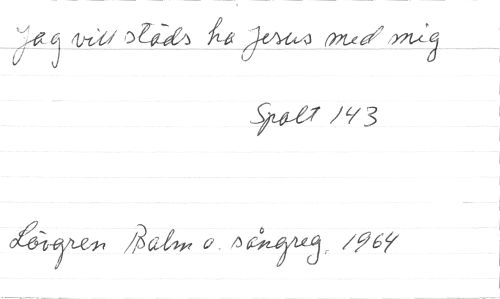 Jag vill städs ha Jesus med mig
Spalt 143
Lövgren Psalm o. sångreg. 1964